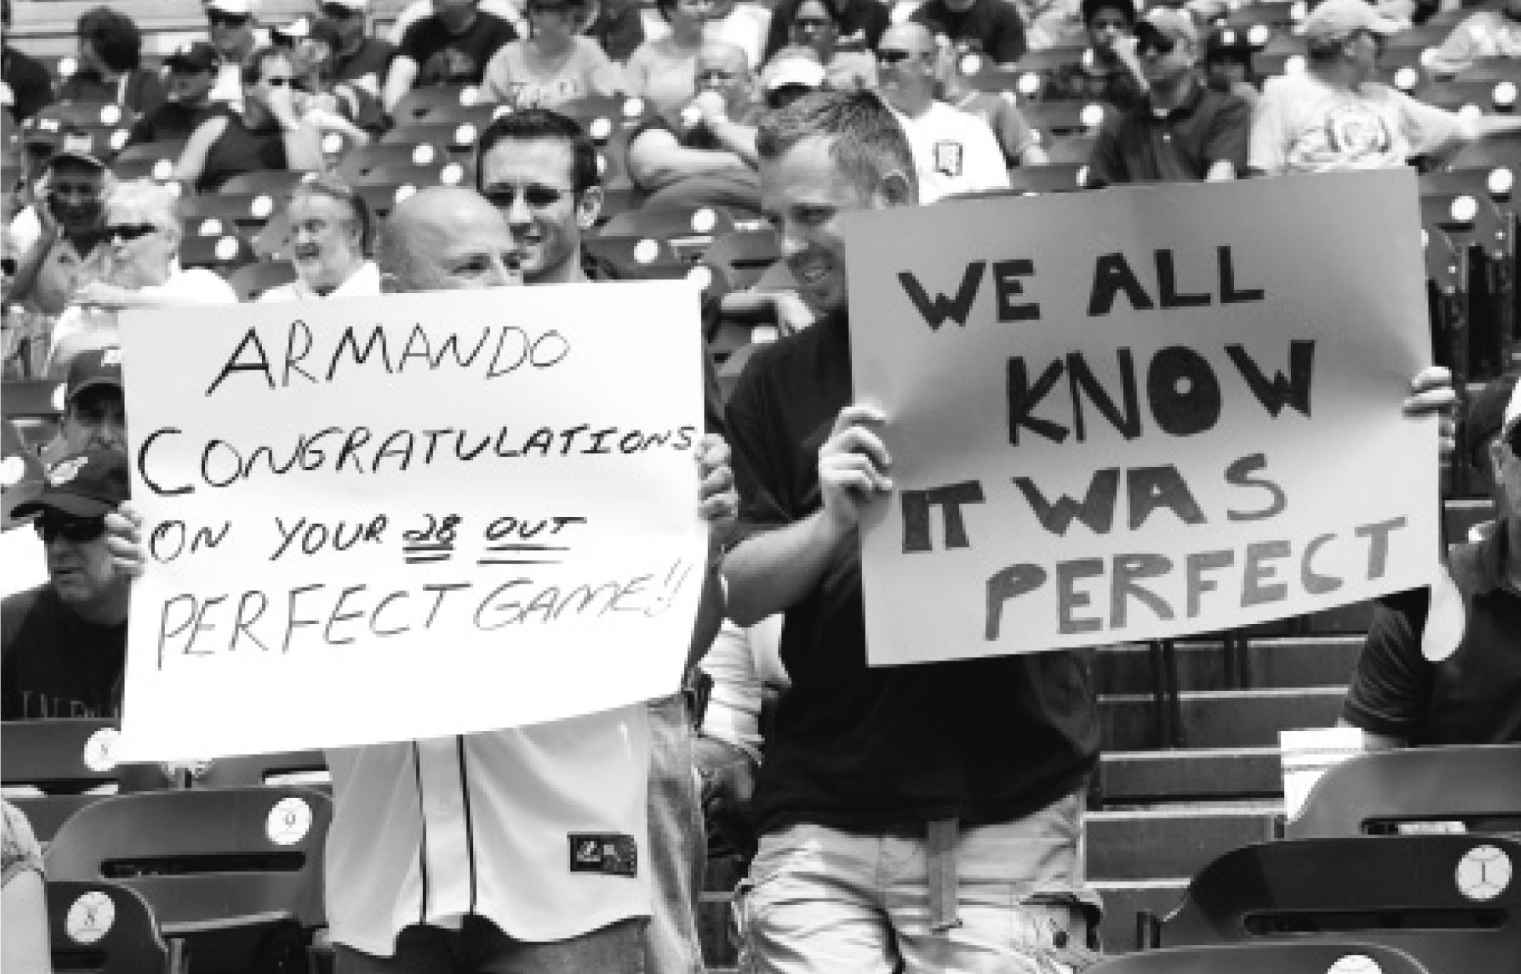 ARMANDO
CONGRATULATIONS
ON YOUR 28 OUT
PERFECT GAME!!
WE ALL
KNOW
IT WAS
PERFECT
9
8
1